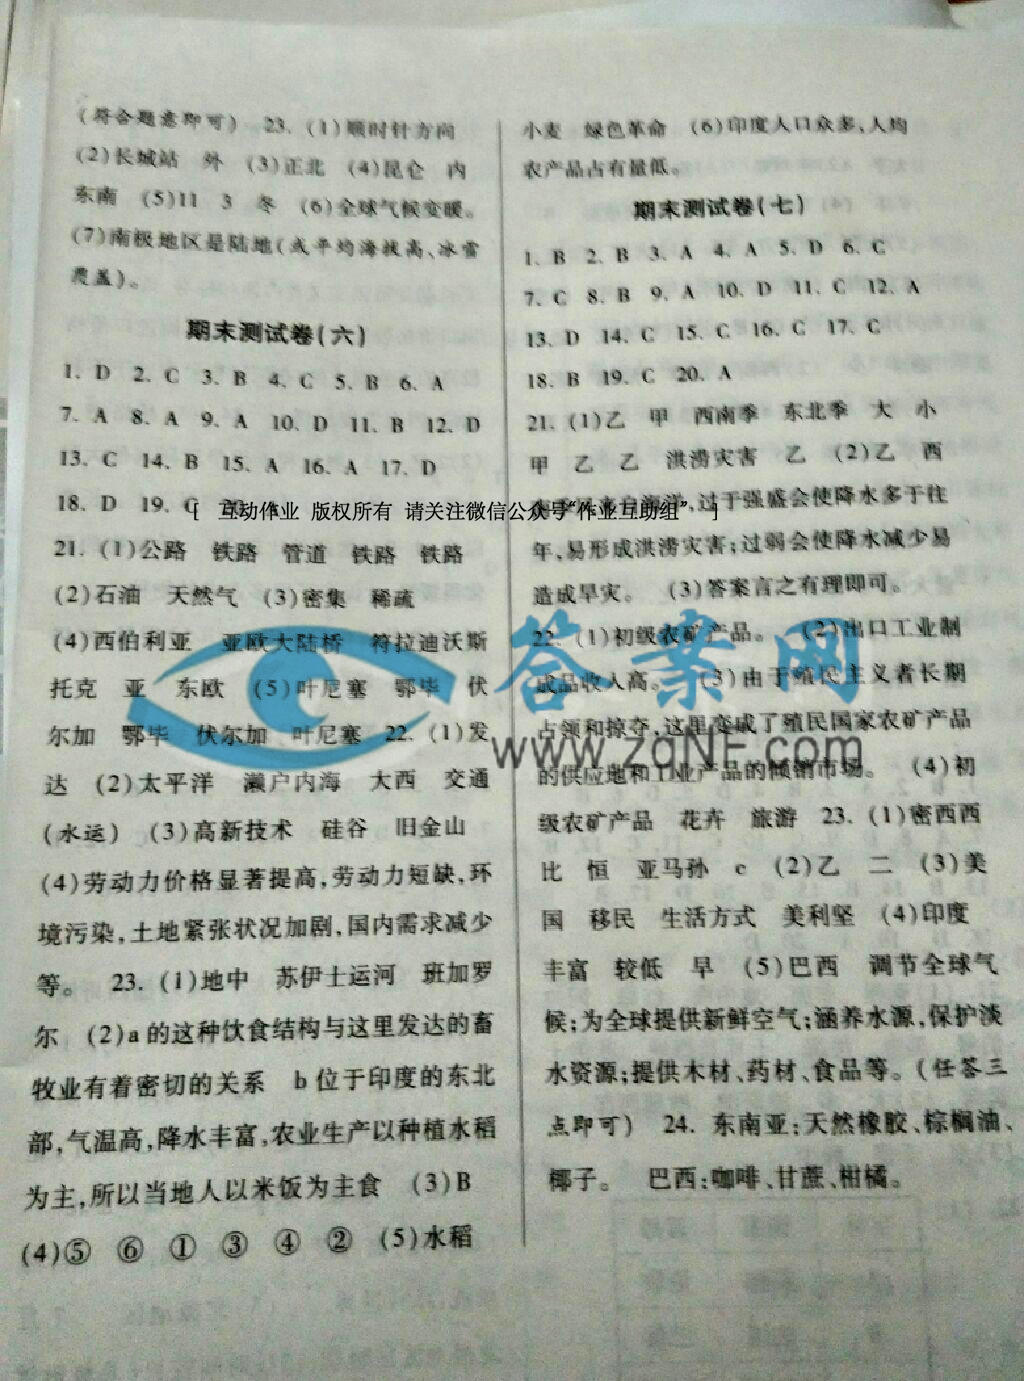 (符合题意即可) 23. (1)顺时针方向
(2)长城站 外 (3)正北 (4)昆仑 内
东南 (5)11 3 冬 (6)全球气候变暖。
(7)南极地区是陆地(或平均海拔高、冰雪
覆盖)。
期末测试卷(六)
1. D 2. C 3. B 4. C 5. B 6. A
7. A 8. A 9. A 10. D 11. B 12. D
13. C 14. B 15. A 16. A 17. D
18. D 19. C
[ 互动作业 版权所有 请关注微信公众号“作业互助组” ]
21. (1)公路 铁路 管道 铁路 铁路
(2)石油 天然气 (3)密集 稀疏
(4)西伯利亚 亚欧大陆桥 符拉迪沃斯
托克 亚 东欧 (5)叶尼塞 鄂毕 伏
尔加 鄂毕 伏尔加 叶尼塞 22. (1)发
达 (2)太平洋 濑户内海 大西 交通
(水运) (3)高新技术 硅谷 旧金山
(4)劳动力价格显著提高,劳动力短缺,环
境污染,土地紧张状况加剧,国内需求减少
等。 23. (1)地中 苏伊士运河 班加罗
尔 (2)a的这种饮食结构与这里发达的畜
牧业有着密切的关系 b位于印度的东北
部,气温高,降水丰富,农业生产以种植水稻
为主,所以当地人以米饭为主食 (3)B
(4)⑤ ⑥ ① ③ ④ ② (5)水稻
小麦 绿色革命 (6)印度人口众多,人均
农产品占有量低。
期末测试卷(七)
1. B 2. B 3. A 4. A 5. D 6. C
7. C 8. B 9. A 10. D 11. C 12. A
13. D 14. C 15. C 16. C 17. C
18. B 19. C 20. A
21. (1)乙 甲 西南季 东北季 大 小
甲 乙 乙 洪涝灾害 乙 (2)乙 西
来自海洋,过于强盛会使降水多于往
年,易形成洪涝灾害;过弱会使降水减少易
造成旱灾。 (3)答案言之有理即可。
22. (1)初级农矿产品。 (2)出口工业制
成品收入高。 (3)由于殖民主义者长期
占领和掠夺,这里变成了殖民国家农矿产品
的供应地和工业产品的倾销市场。 (4)初
级农矿产品 花卉 旅游 23. (1)密西西
比 恒 亚马孙 c (2)乙 二 (3)美
国 移民 生活方式 美利坚 (4)印度
丰富 较低 早 (5)巴西 调节全球气
候;为全球提供新鲜空气;涵养水源,保护淡
水资源;提供木材、药材、食品等。(任答三
点即可) 24. 东南亚:天然橡胶、棕榈油、
椰子。 巴西:咖啡、甘蔗、柑橘。
答案网
www.zqNF.com